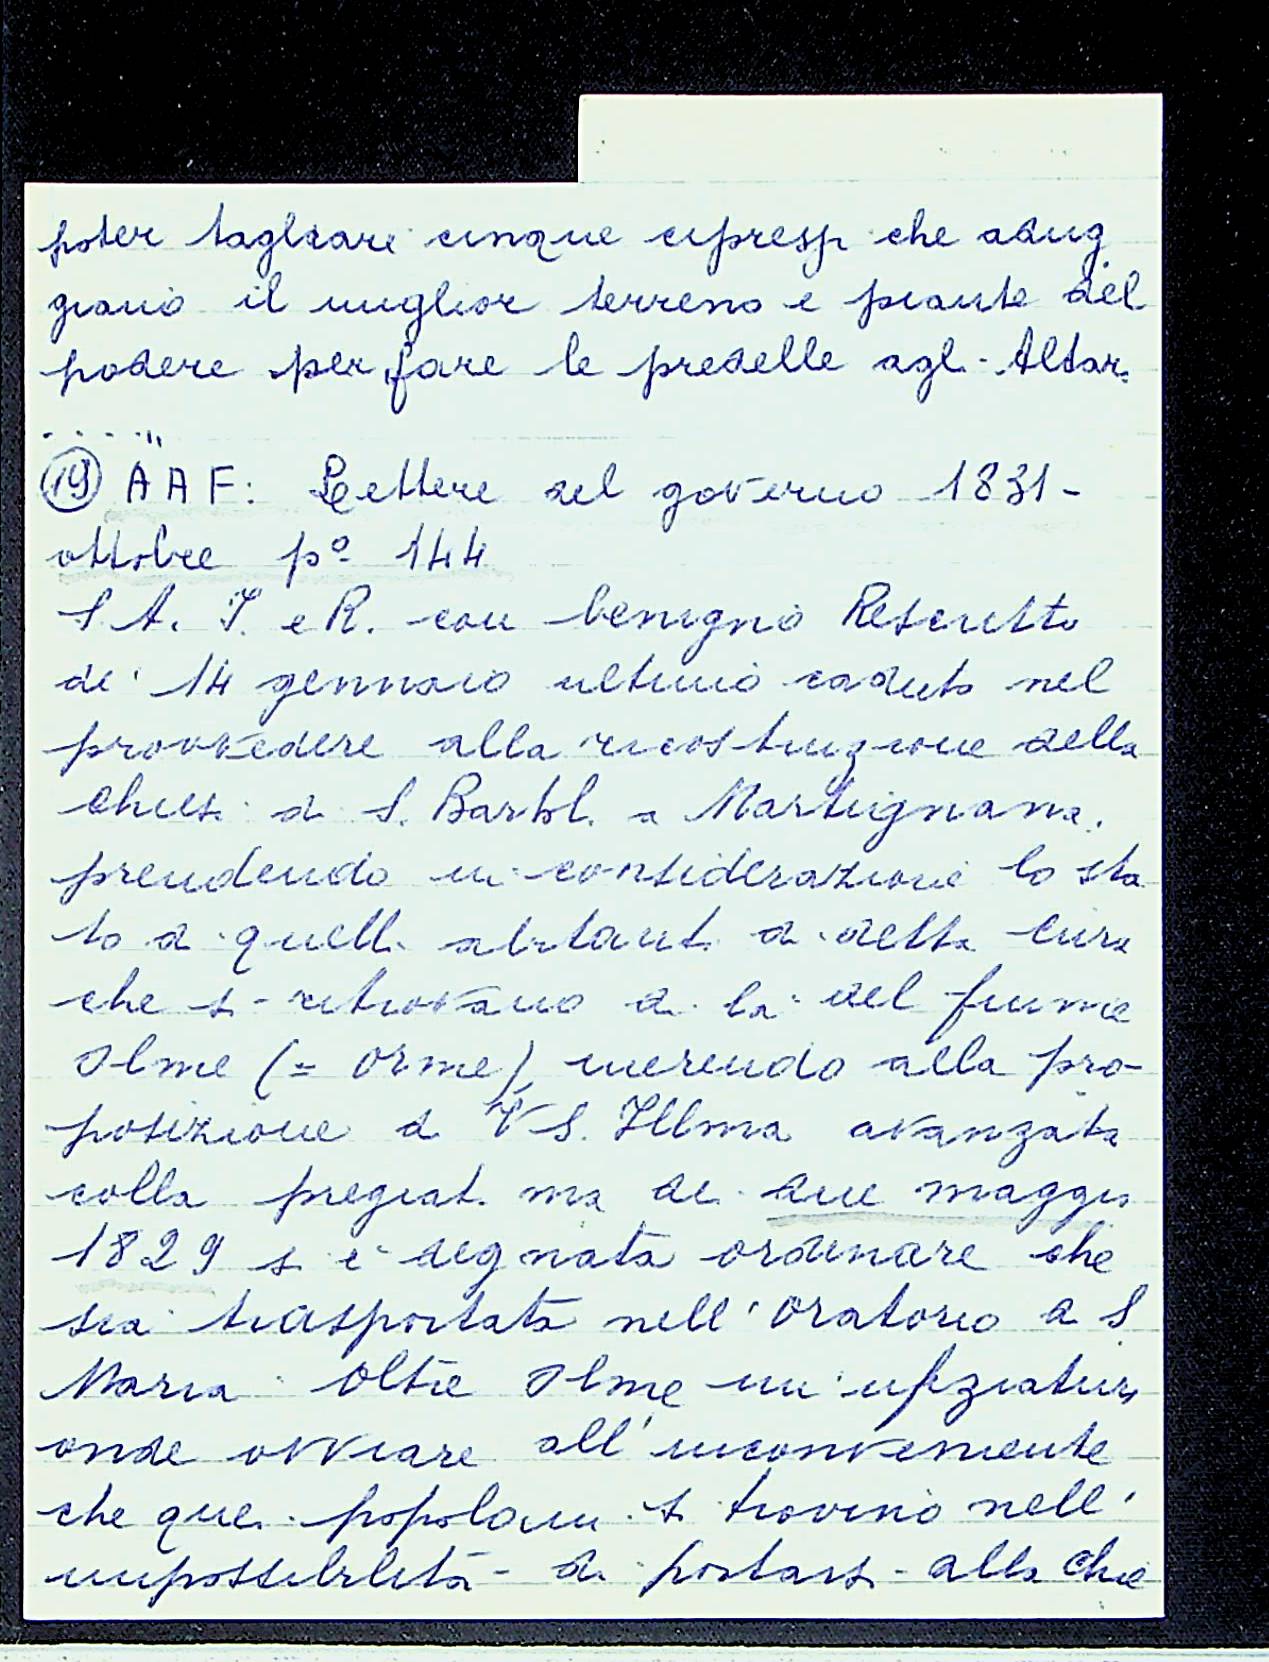 poter tagliare cinque cipressi che adug
giano il miglior terreno e piante del
podere per fare le predelle agli Altari
....."
19 A A F: Lettere del governo 1831-
ottobre pº 144
S. A. I. e R. con benigno Rescritto
de' 14 gennaio ultimo caduto nel
provvedere alla ricostruzione della
Chiesa di S. Bartol. a Martignana,
prendendo in considerazione lo sta
to di quelli abitanti di detta Cura
che si ritrovano di là del fiume
Olme (= Orme), inerendo alla pro-
posizione di VS. Illma avanzata
colla pregiat.ma de' due maggio
1829 si è degnata ordinare che
sia trasportata nell'Oratorio di S
Maria Oltre Olme un'ufiziatura
onde ovviare all'inconveniente
che quei popolani si trovino nell'
impossibilità di portarsi alla Chie